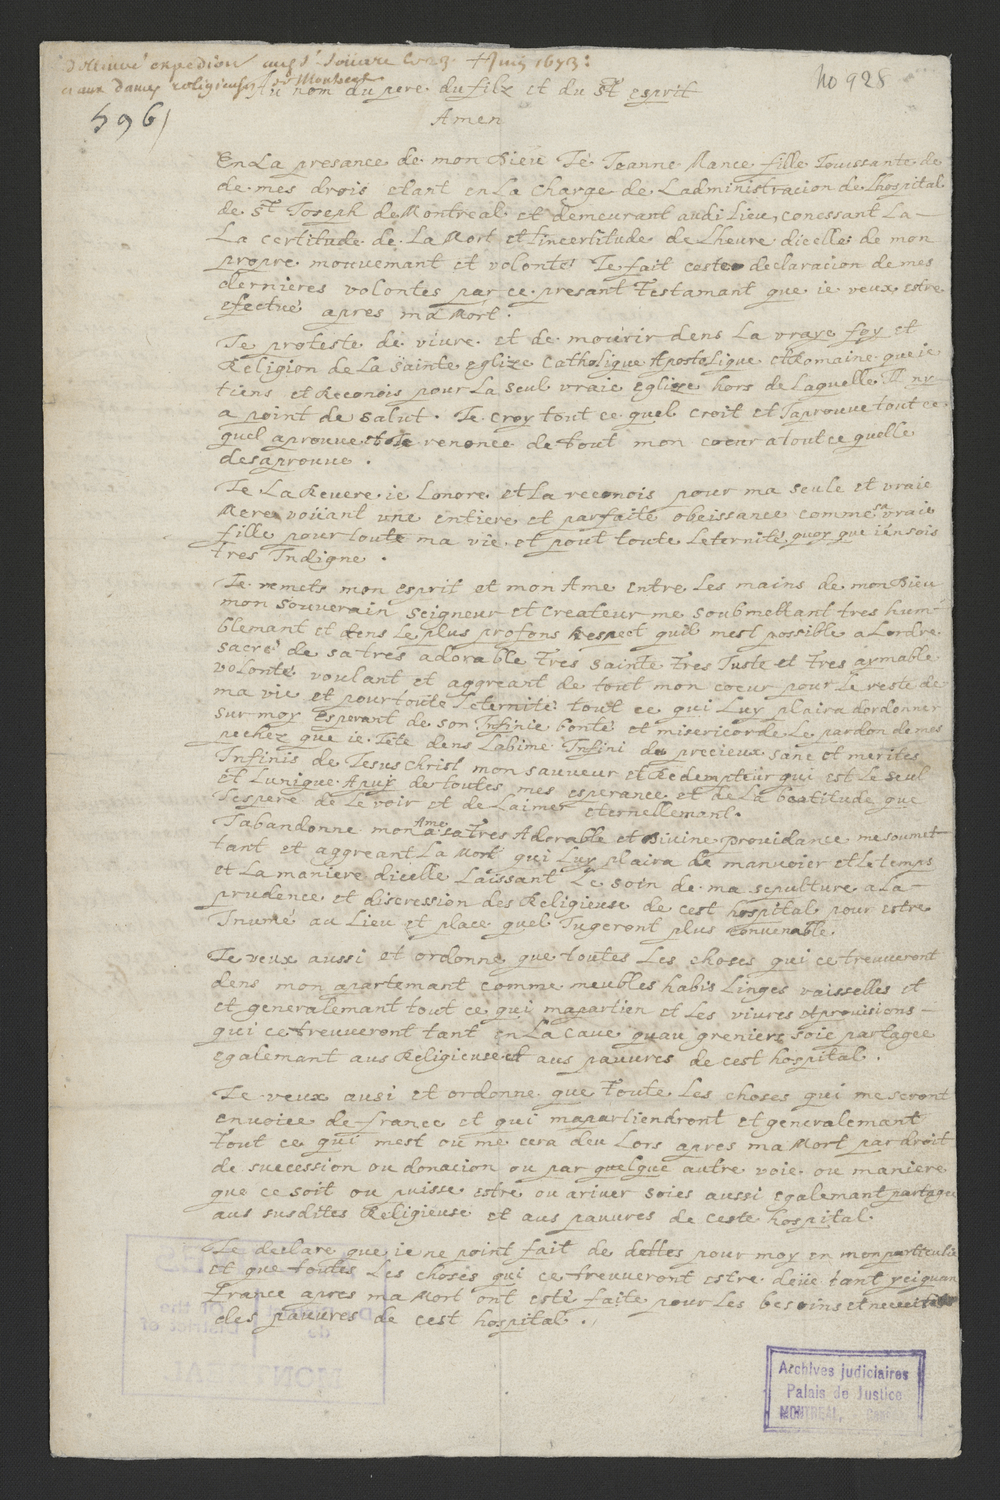 No 928
596
Au nom du pere du filz et du St esprit
Amen
En La presance de mon Dieu Je Jeanne Mance fille Jouissante de
de mes drois etant en La Charge de Ladministracion de Lhospital
de St Joseph de Montreal et demeurant audi Lieu, conessant La
La certitude de La Mort et Lincertitude de Lheure dicelle de mon
propre mouvemant et volonté Je fait ceste declaracion de mes
dernieres volontes par ce presant Testamant que ie veux estre
efectué apres ma Mort.
Je proteste de vivre et de mourir dens La vraye foy et
Religion de La Sainte eglize Catholique Apostolique et Romaine que ie
tiens et Reconois pour La seul vraie Eglize hors de Laquelle Il ny
a point de Salut. Je croy tout ce quel croit et Japrouve tout ce
quel aprouve et Je renonce de tout mon coeur a tout ce quelle
desaprouve.
Je La Revere ie Lonore et La reconois pour ma seule et vraie
Mere voüant une entiere et parfaite obeissance comme sa vraie
fille pour toute ma vie et pout toute Leternité quoy que ien sois
tres Indigne.
Je remets mon esprit et mon Ame entre Les mains de mon Dieu
mon Souverain Seigneur et Createur me soubmettant tres hum-
blemant et dens Le plus profons Respect quil mest possible a Lordre
sacré de sa tres adorable tres sainte tres Juste et tres aymable
volonté voulant et aggreant de tout mon coeur pour Le reste de
ma vie et pour toute Leternité tout ce qui Luy plaira dordonner
sur moy Esperant de son Infinie bonté et misericorde Le pardon de mes
pechez que ie Jete dens Labime Infini du precieux sanc et merites
Infinis de Jesus Christ mon sauveur et Redempteur qui est Le seul
et Lunique Apuy de toutes mes esperance et de La beatitude que
Jespere de Le voir et de Laimer eternellemant.
Jabandonne mon Ame a sa tres Adorable et Divine providance me soumet-
tant et aggreant La Mort qui Luy plaira de manvoier et Le temps
et La maniere dicelle Laissant Le soin de ma sepulture a La
prudence et discression des Religieuse de cest hospital pour estre
Inumé au Lieu et place quel Jugeront plus Convenable.
Je veux aussi et ordonne que toutes Les choses qui ce treuveront
dens mon apartemant comme meubles habis Linges vaisselles et
et generalemant tout ce qui mapartien et Les vivres et provisions
qui ce treuveront tant en La Cave quau greniers soie partagee
egalemant aus Religieuse et aus pauvres de cest hospital.
Je veux ausi et ordonne que toute Les choses qui me seront
envoiee de france et qui mapartiendront et generalemant
tout ce qui mest ou me cera deu Lors apres ma Mort par droit
de succession ou donacion ou par quelque autre voie ou maniere
que ce soit ou puisse estre ou ariver soies aussi egalemant partagee
aus susdites Religieuse et aus pauvres de ceste hospital.
Je declare que ie ne point fait de dettes pour moy en mon particulie
et que toutes Les choses qui ce treuveront estre deüe tant yci quan
France apres ma Mort ont esté faite pour Les besoins et
des pauvres de cest hospital.
Archives judiciaires
Palais de Justice
MONTREAL,